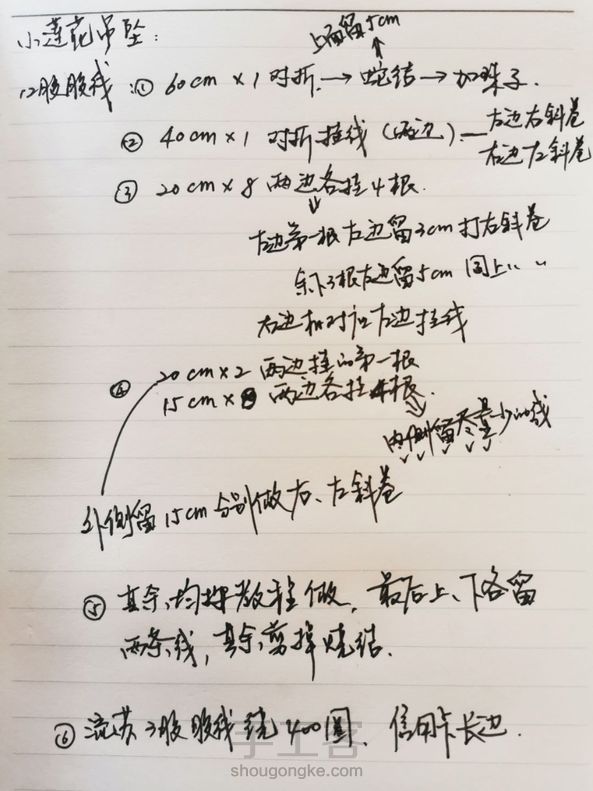 小莲花吊坠:
上面留5cm
12股股线 ① 60cm×1 对折.→蛇结→加珠子.
② 40cm×1 对折挂线(两边).
左边右斜卷
右边左斜卷
③ 20cm×8 两边各挂4根.
左边第一根左边留3cm打右斜卷
余下3根左边留5cm 同上
右边相对应左边挂线
④ 20cm×2 两边挂的第一根
15cm×8 两边各挂4根.
内侧留尽量少的线
外侧留15cm分别做右、左斜卷
⑤ 其余均按教程做,最后上、下各留
两条线,其余剪掉烧结.
⑥ 流苏3股股线绕400圈、信用卡长边.
手工客
shougongke.com